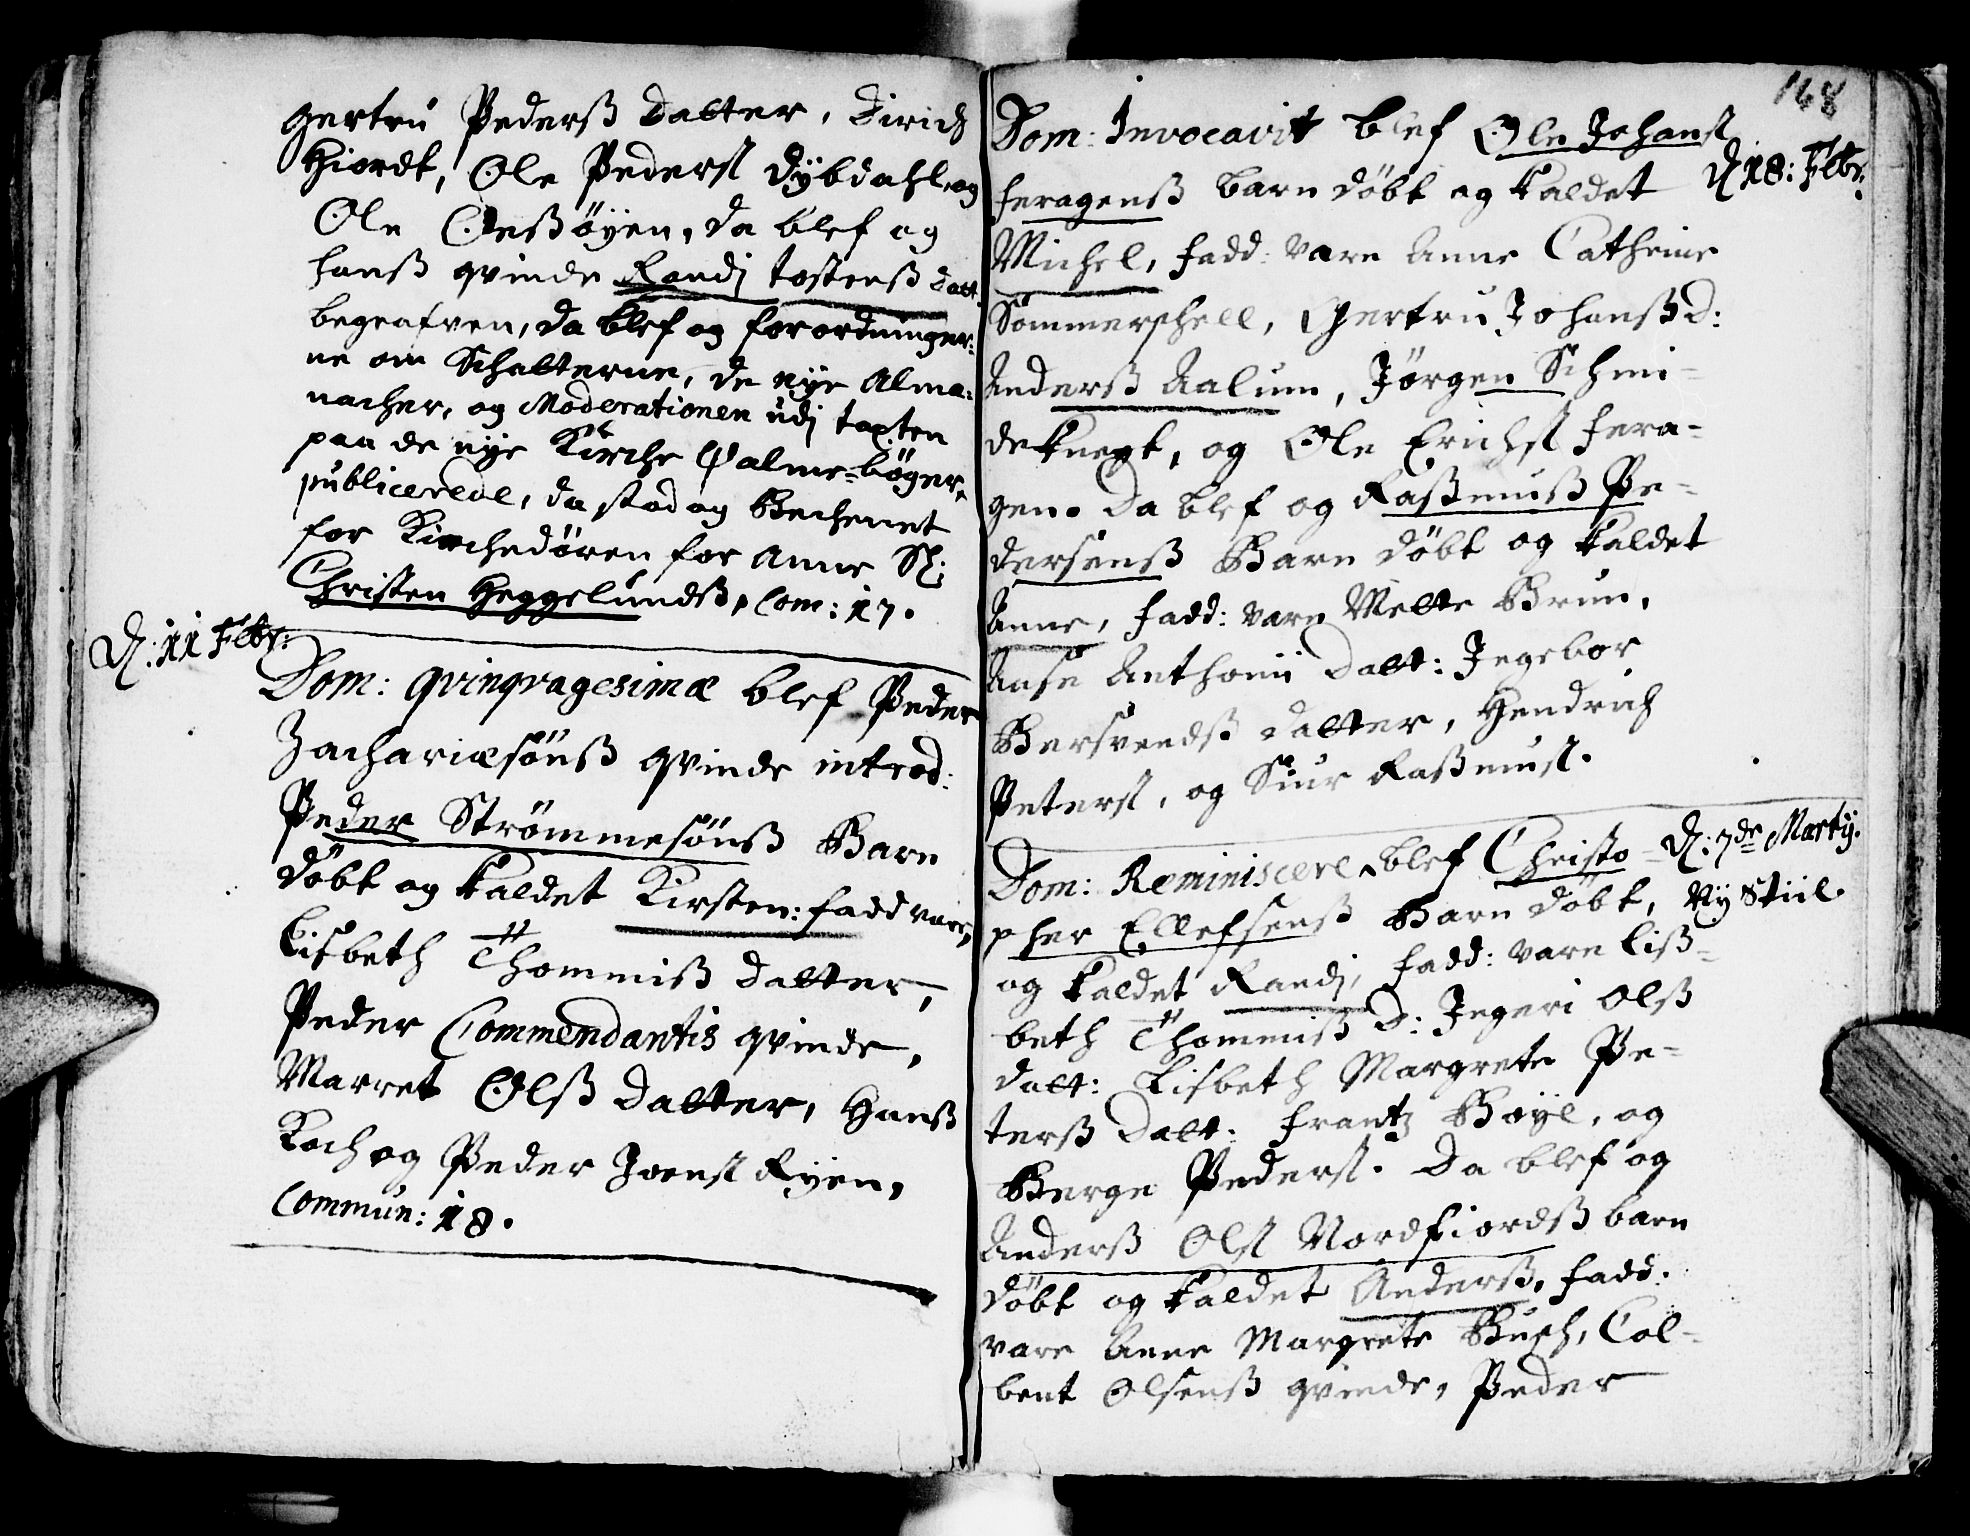 gertru Pederß datter, Dirich
Hiordt, Ole Pederß Dybdahl, og
Ole Oeßøyen, da blef og
hanß qvinde Randj tostenß datt.
begrafven, da blef og forordninger:
ne om Schatterne, de nye Alma:
nacher, og Moderationen udj taxten
paa de nye Kirche Psalme-bøger,
publicerede, da stod og Bechenet
for Kirchedøren for Anne Sl:
Christen Heggelundß, Com: 17.
D: 11 Febr:
Dom: qvinqvagesimæ blef Peder
Zachariæsönß qvinde introd:
Peder Strömmesönß Barn
döbt og kaldet Kirsten: fadd vare,
Lisbeth Thommiß datter,
Peder Commendantis qvinde,
Marret Olß datter, Hanß
Koch og Peder Joenß Ryen,
Commun: 18.
168
Dom: Invocavit blef Ole Johanß
D 18: Febr:
feragenß barn döbt og kaldet
Michel, fadd: vare Anne Cathrine
Sommerschell, Gertru Johanß D:
Anderß Aalum, Jörgen Schmi-
deknegt, og Ole Erichß fera-
gen. Da blef og Raßmuß Pe-
dersenß Barn döbt og kaldet
Anne, fadd: vare Mette Brun,
Aase Anthonii datt: Ingebor
Bersvendß datter, Hendrich
Peterß, og Siur Raßmuß.
Dom: Reminiscere, blef Christo-
D: 7de Marty.
pher Ellefsenß Barn döbt,
Ny Stiil.
og kaldet Randj, fadd: vare Liß-
beth Thommiß D: Ingeri Olß
datt: Lisbeth Margrete Pe-
terß datt: Frantz Boyl, og
Berge Pederß. Da blef og
Anderß Olß Nordfiordß barn
döbt og kaldet Anderß, fadd:
vare Anne Margrete Busch, Col-
bent Olsenß qvinde, Peder